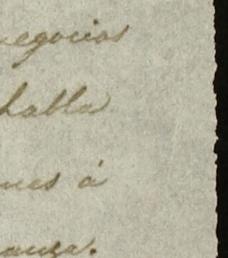 negocios
habla
nes á
anza.